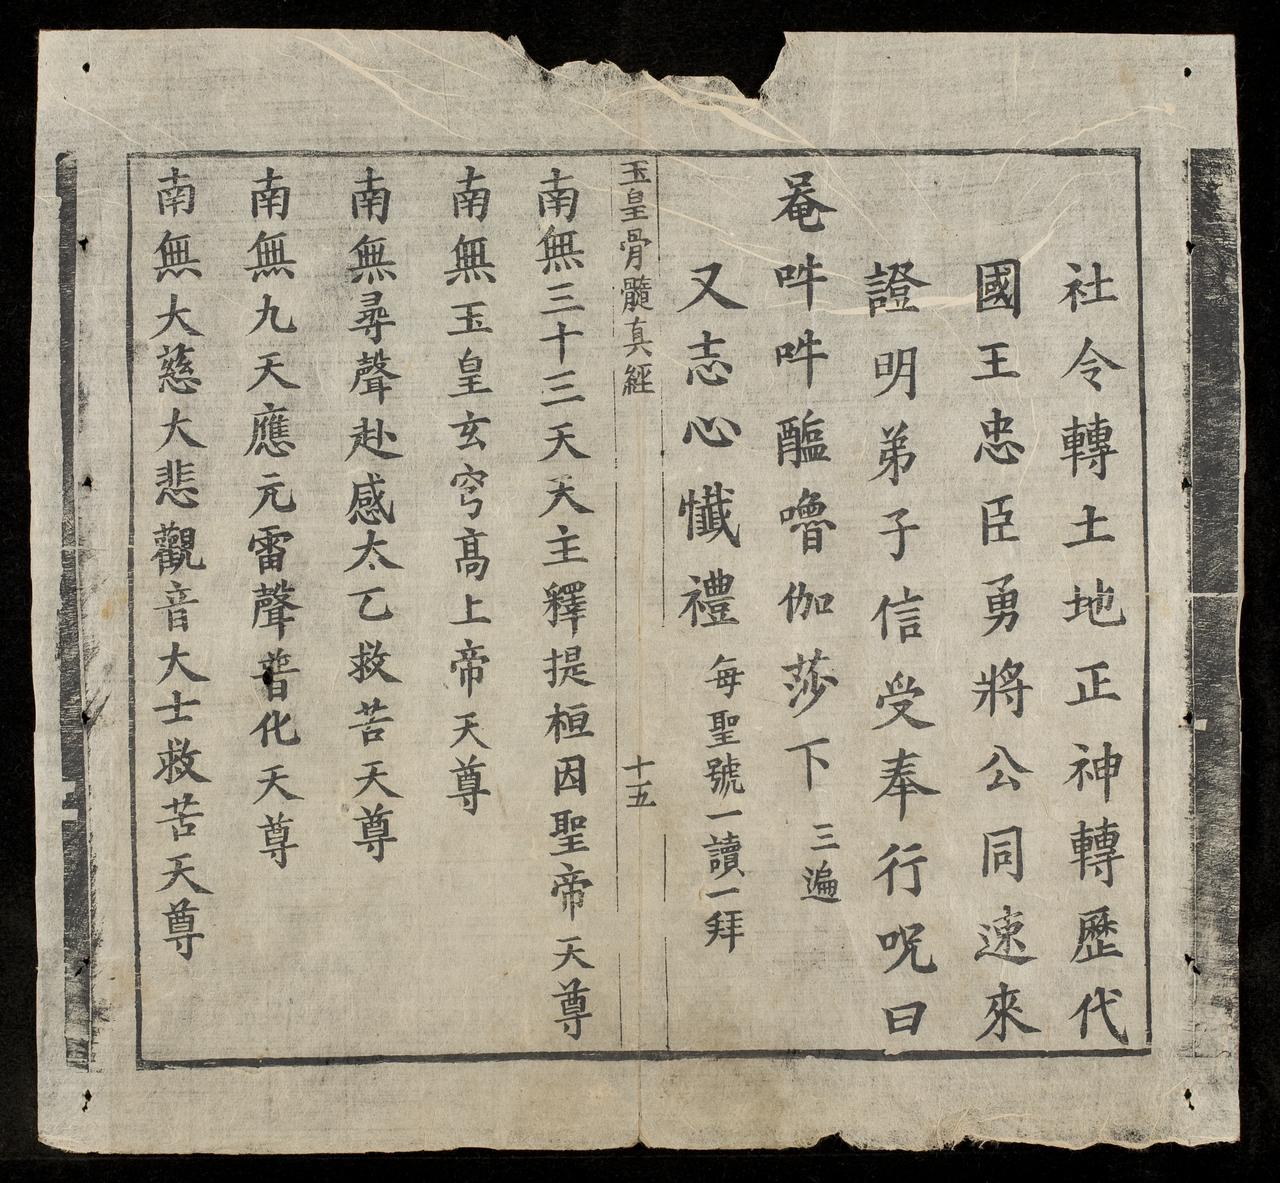 社令轉土地正神轉歷代
國王忠臣勇將公同速來
證明弟子信受奉行呪曰
菴吽吽𨣻嚕伽莎下 三遍
又志心懺禮 每聖號一讀一拜
玉皇骨髓真經 十五
南無三十三天天主釋提桓因聖帝天尊
南無玉皇玄穹高上帝天尊
南無尋聲赴感太乙救苦天尊
南無九天應元雷聲普化天尊
南無大慈大悲觀音大士救苦天尊